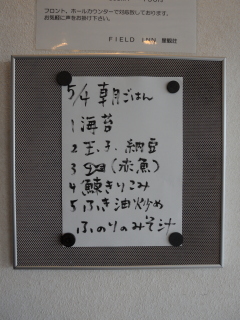 フロント、ホールカウンターで対応致しております。
お気軽に声をお掛け下さい。
FIELD INN
5/4 朝ごはん
1 海苔
2 玉子 納豆
3 (赤魚)
4 鰊きりこみ
5 ふき油炒め
ふのりのみそ汁